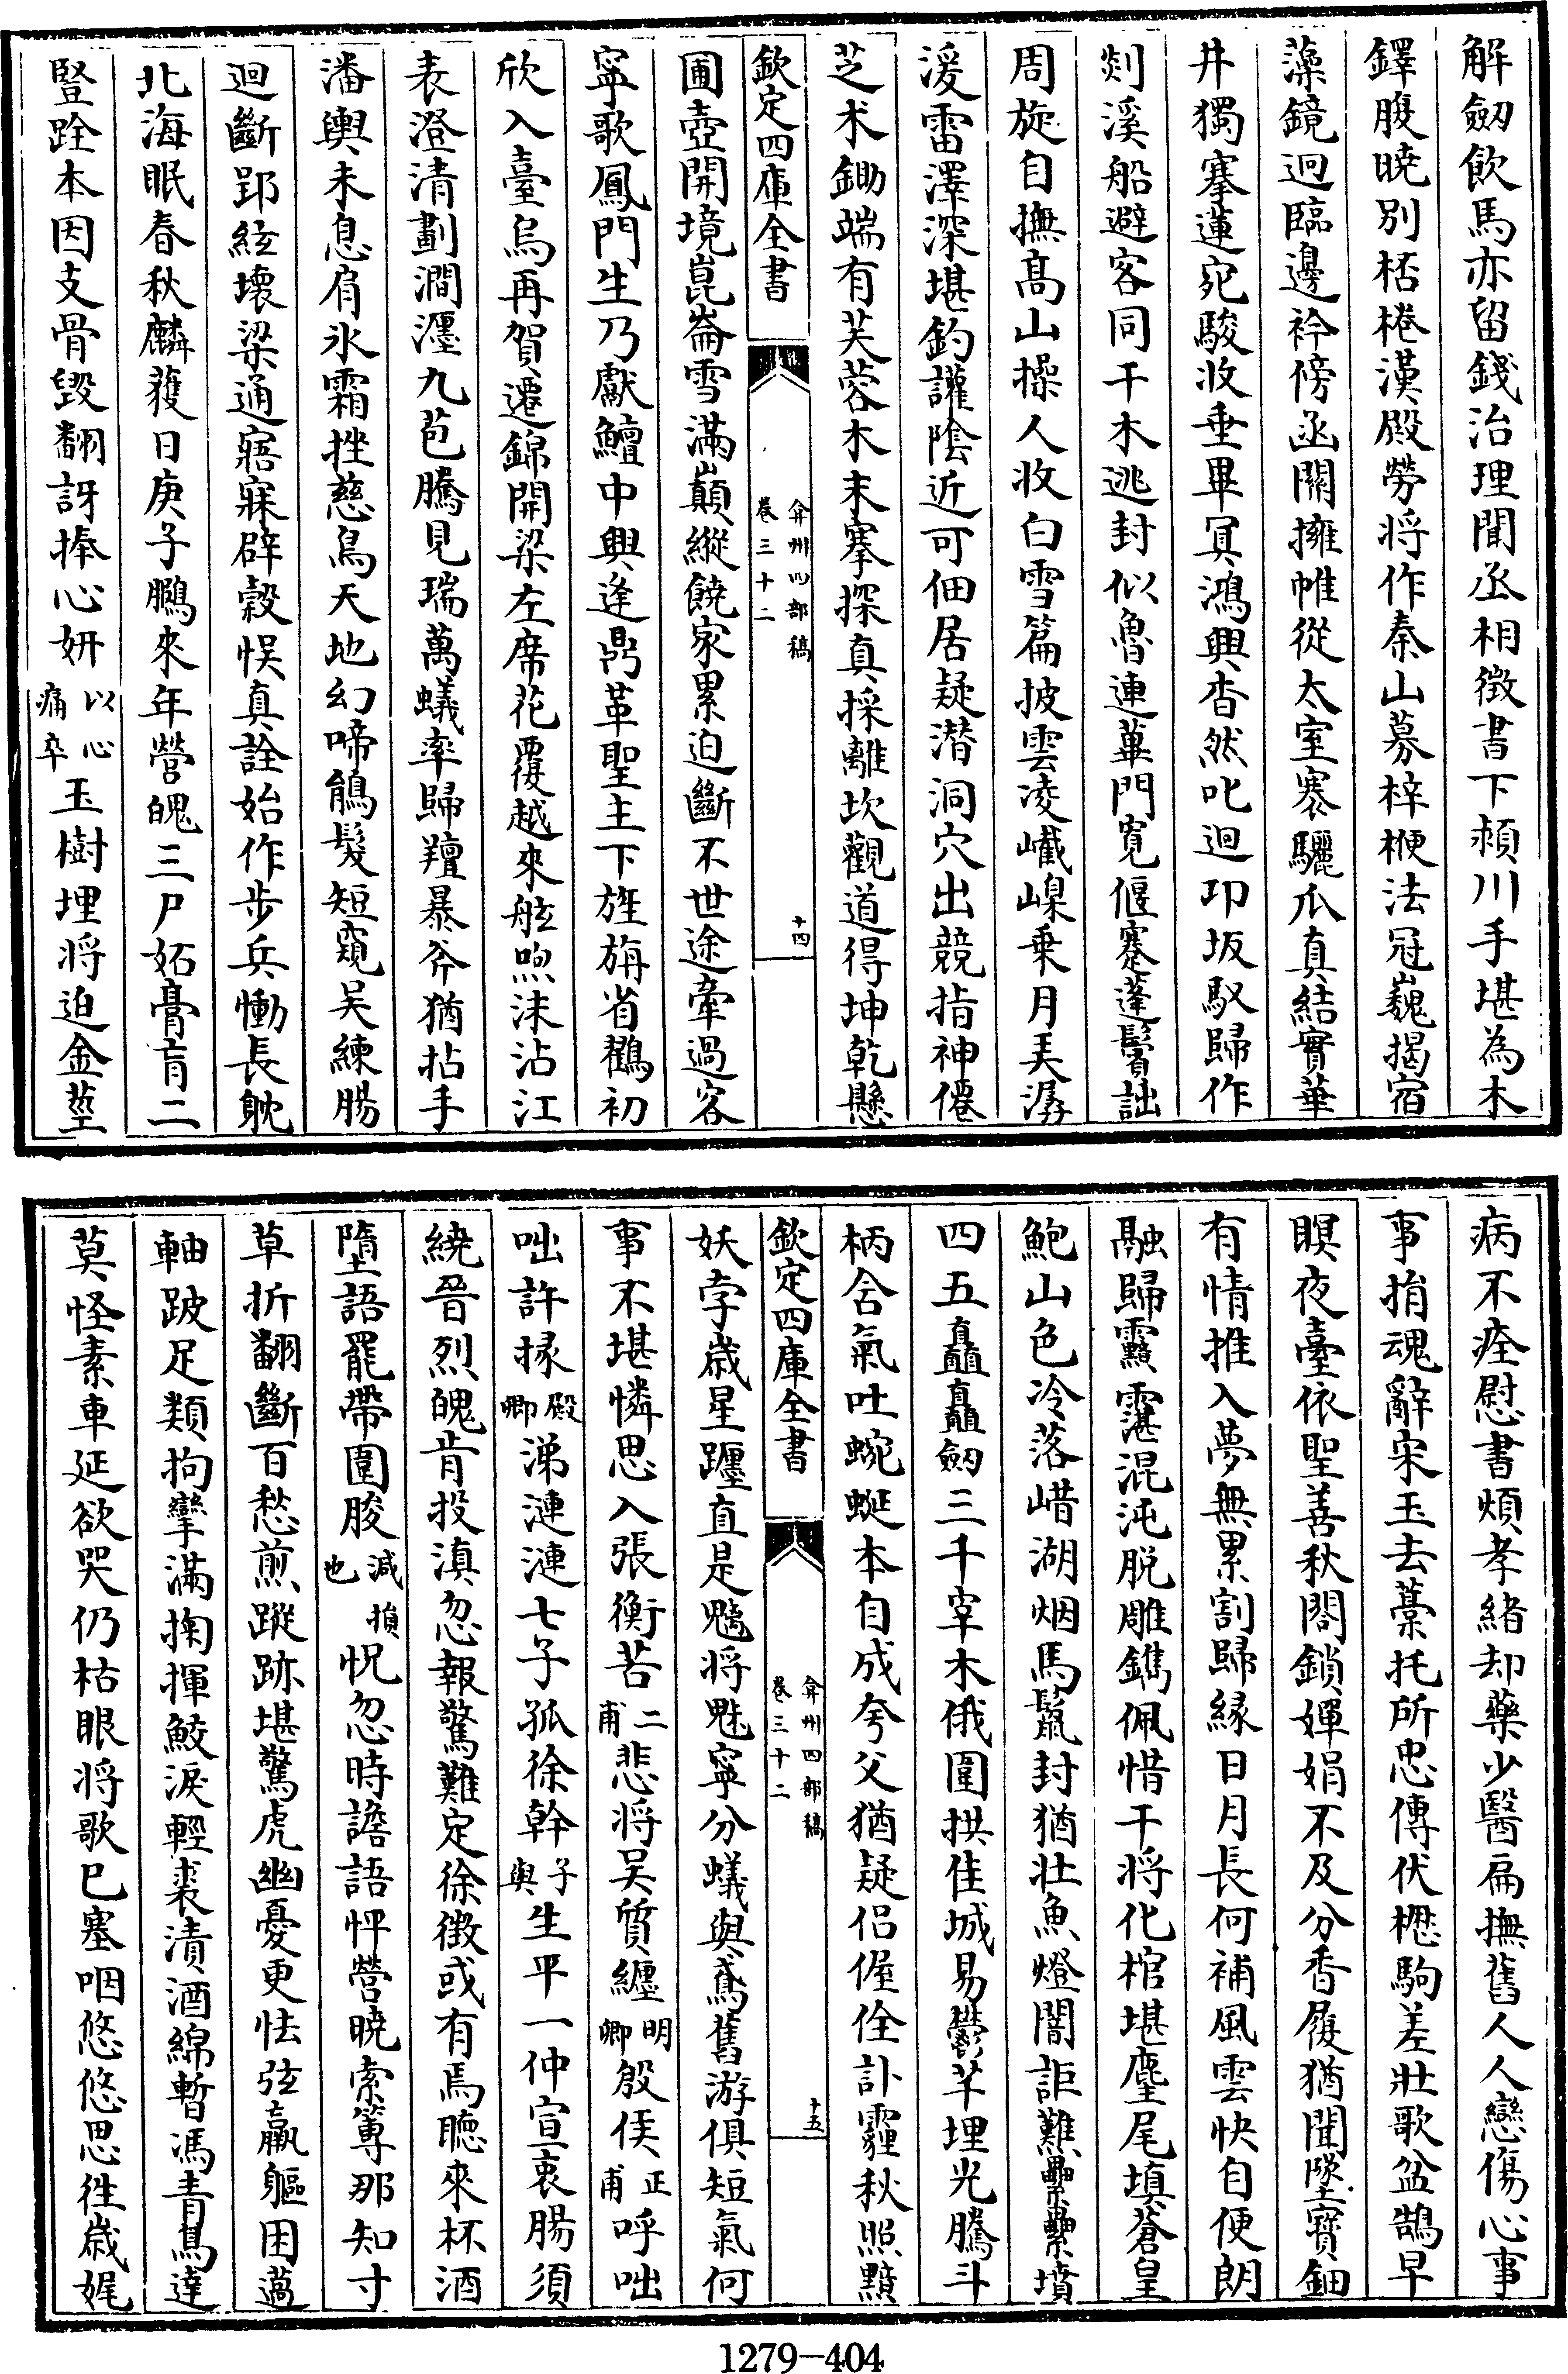 解劒飲馬亦留錢治理聞丞相徵書下潁川手堪為木
鐸腹曉別桮棬漢殿勞将作秦山募梓楩法冠巍揭宿
藻鏡迥臨邊衿傍函關擁帷從太室褰驪爪真結實華
井獨搴蓮宛駿收垂畢冥鴻興杳然叱迴卭坂馭歸作
剡溪船避客同干木逃封似魯連蓽門寛偃蹇蓬鬢詘
周旋自撫髙山操人收白雪篇披雲凌巀嵲乗月弄潺
湲雷澤深堪釣讙陰近可佃居疑潜洞穴出競指神僊
芝术鋤端有芙蓉木末搴探真採離坎觀道得坤乾懸
欽定四庫全書
弇州四部稿
卷三十二
十四
圃壺開境崑崙雪滿巔縱饒家累迫斷不世途牽過客
寧歌鳳門生乃獻鱣中興逢鼎革聖主下旌旃省鸛初
欣入臺烏再賀遷錦開梁左席花覆越來舷呴沫沾江
表澄清劃澗瀍九苞騰見瑞萬蟻率歸羶暴斧猶拈手
潘輿未息肩氷霜挫慈鳥天地幻啼鵑髮短窺吳練腸
迴斷郢絃壊梁通寤寐辟穀悞真詮始作步兵慟長躭
北海眠春秋麟獲日庚子鵬來年營魄三尸妬膏肓二
竪跧本因支骨毀翻訝捧心妍
以心
痛卒
玉樹埋将迫金莖
病不痊慰書煩孝緒却藥少醫扁撫舊人人戀傷心事
事捐魂辭宋玉去藁托所忠傳伏櫪駒差壯歌盆鵠早
瞑夜臺依聖善秋閤鎖嬋娟不及分香履猶聞墜寶鈿
有情推入夢無累割歸緣日月長何補風雲快自便朗
融歸霣霮混沌脱雕鐫佩惜干将化棺堪麈尾填蒼皇
鮑山色冷落㟙湖烟馬鬛封猶壯魚燈闇詎難纍纍墳
四五矗矗劒三千宰木俄圍拱佳城易鬱芊埋光騰斗
柄含氣吐蜿蜒本自成夸父猶疑侣偓佺訃霾秋照黯
欽定四庫全書
弇州四部稿
卷三十二
十五
妖孛嵗星躔直是魑将魅寧分蟻與鳶舊游俱短氣何
事不堪憐思入張衡苦
二
甫
悲将吴質纏
明
卿
殷侯
正
甫
呼咄
咄許掾
殿
卿
涕漣漣七子孤徐幹
子
與
生平一仲宣衷腸須
繞晉烈魄肯投滇忽報驚難定徐徵或有焉聽來杯酒
墮語罷帶圍朘
減
也
損
怳忽時譫語怦營曉索篿那知寸
草折翻斷百愁煎蹤跡堪驚虎幽憂更怯弦羸軀困薖
軸跛足類拘攣滿掬揮鮫淚輕裘漬酒綿暫馮青鳥達
莫怪素車延欲哭仍枯眼将歌已塞咽悠悠思徃嵗娓
1279-404